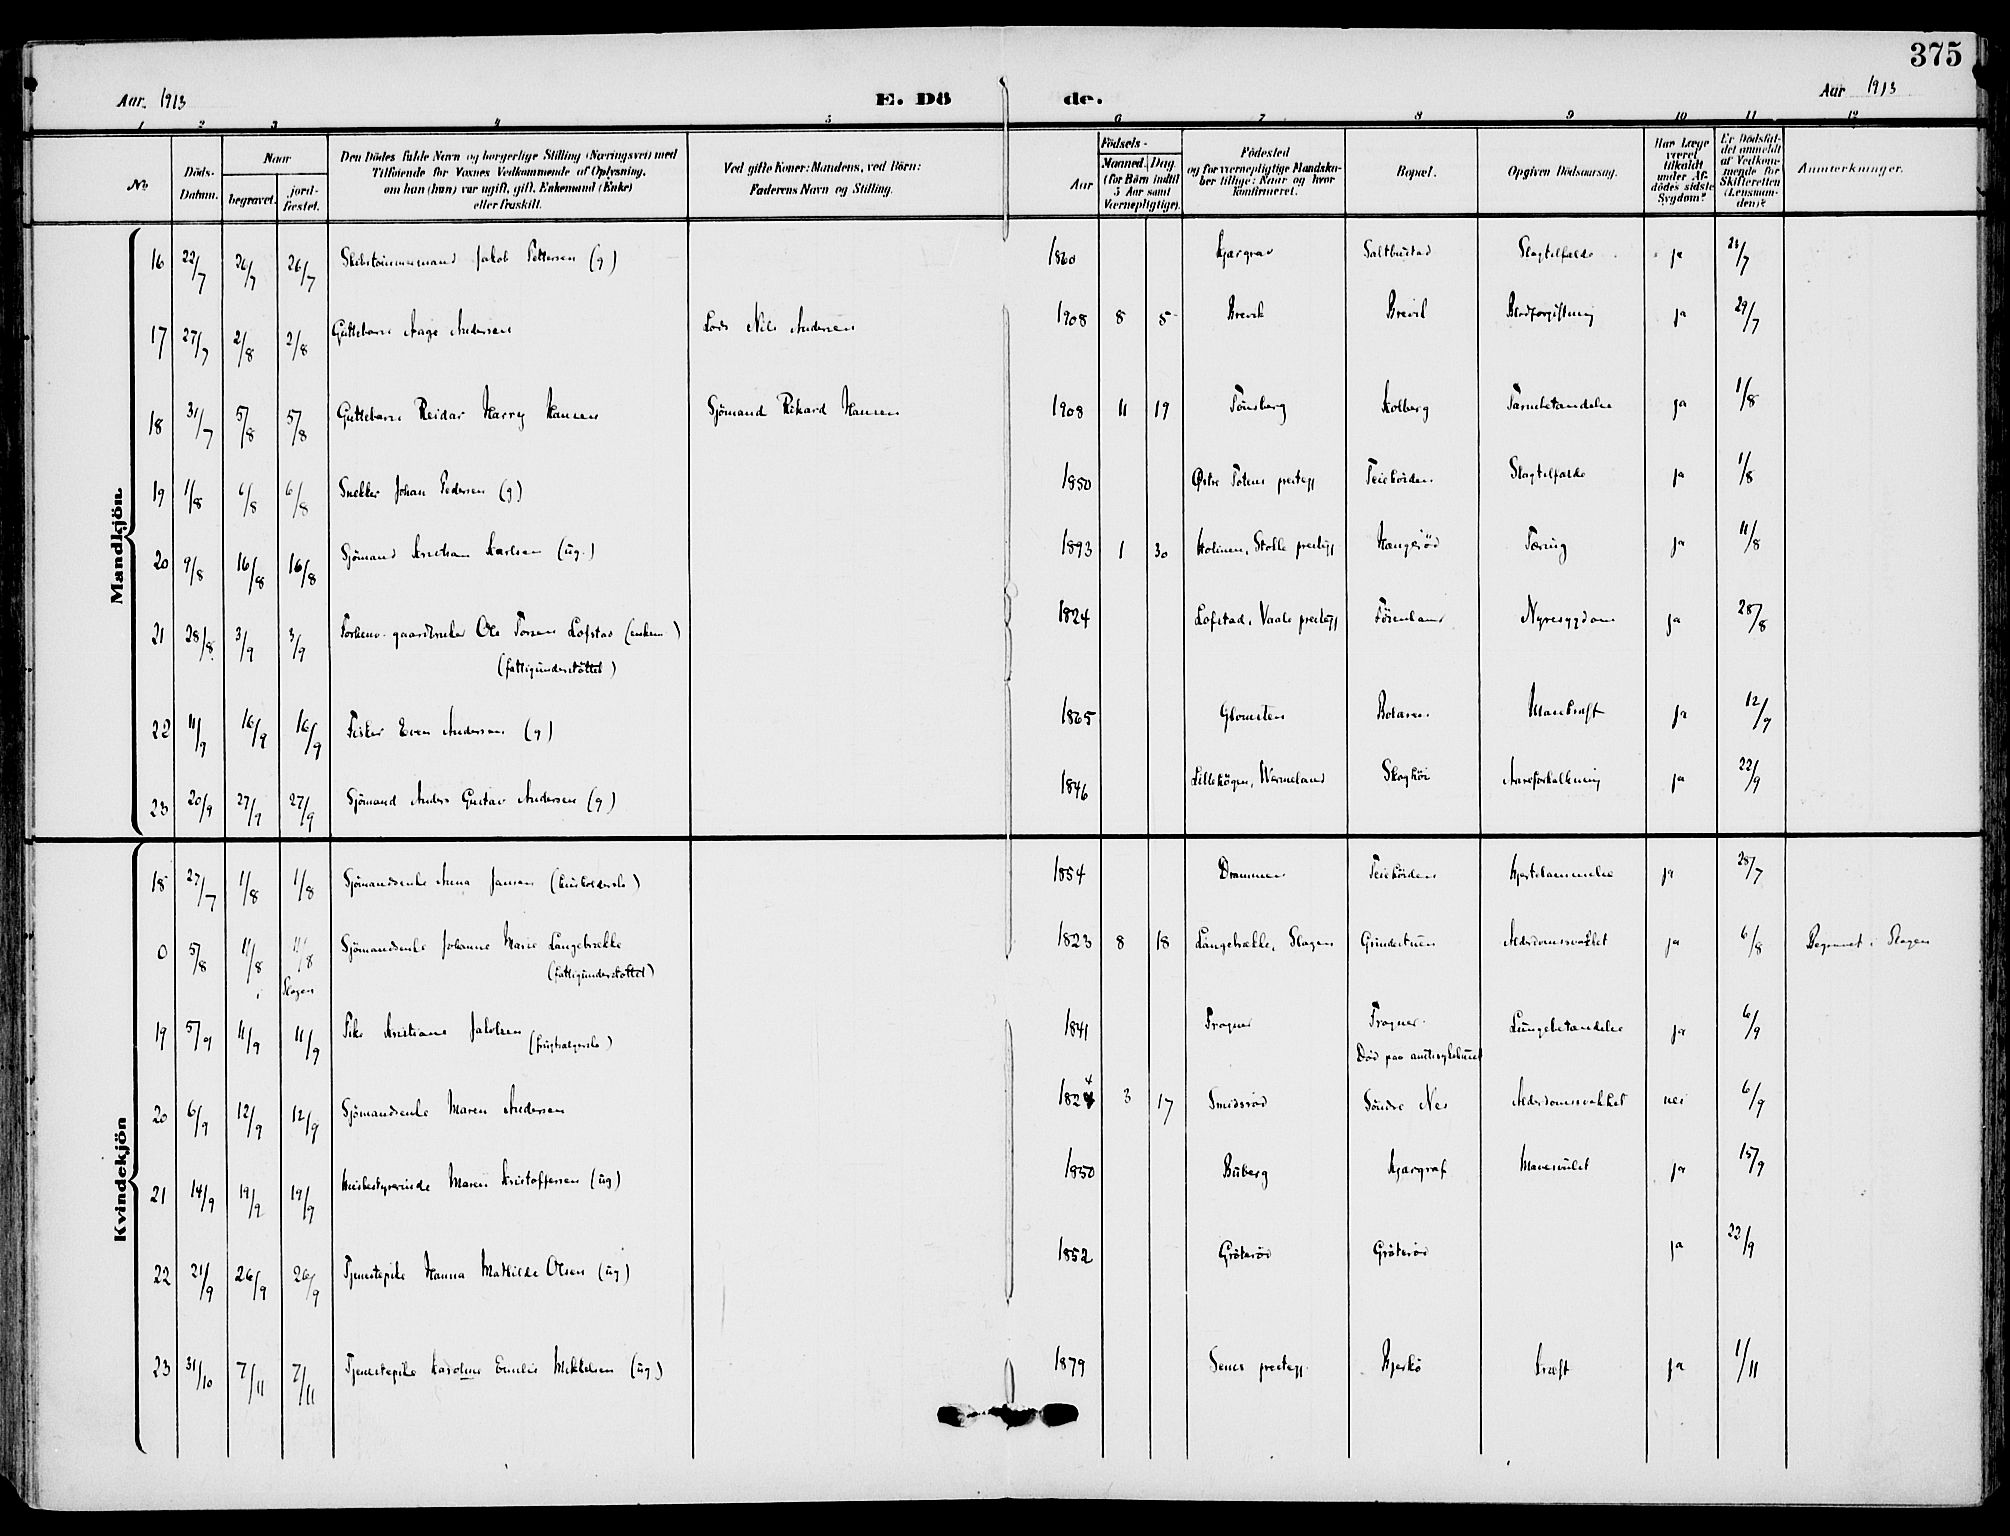 375
Aar. 1913
E. Dö de.
Aar 1913
1 2 3 4 5 6 7 8 9 10 11 12
No
Döds-Datum.
Naar
begravet.
jord-fæstet.
Den Dödes fulde Navn og borgerlige Stilling (Næringsvei) med
Tilföiende for Voxnes Vedkommende af Oplysning,
om han (hun) var ugift, gift, Enkemand (Enke)
eller fraskilt.
Ved gifte Koner: Mandens, ved Börn:
Faderens Navn og Stilling.
Födsels-
Aar
Maaned. Dag
(for Börn indtil
5 Aar samt
Værnepligtige).
Födested
og for værnepligtige Mandska-
ber tillige: Naar og hvor
konfirmeret.
Bopæl.
Opgiven Dödsaarsag.
Har Læge
været
tilkaldt
under Af-
dödes sidste
Sygdom?
Er Dödsfal-
det anmeldt
af Vedkom-
mende for
Skifteretten
(Lensman-
den)?
Anmærkninger.
Mandkjön.
16 22/7 26/7 26/7 Skibstømmermand Jakob Pettersen (g) 1860 Kjærgrav Saltbustad Slagtilfælde ja 23/7
17 27/7 2/8 2/8 Guttebarn Aage Andersen Lods Nils Andersen 1908 8 5 Brevik Brevik Blodforgiftning ja 29/7
18 31/7 5/8 5/8 Guttebarn Reidar Harry Hansen Sjömand Rikard Hansen 1908 11 19 Tönsberg Kolberg Tarmbetændelse ja 1/8
19 1/8 6/8 6/8 Snekker Johan Pedersen (g) 1850 Østre Totens prestegj Teiehöiden Slagtilfælde ja 1/8
20 9/8 16/8 16/8 Sjömand Kristian Karlsen (ug.) 1893 1 30 Holmen, Stokke prestegj Haugerød Tæring ja 11/8
21 28/8 3/9 3/9 Forhenv. gaardbruker Ole Torsen Lofstad (enkem) 1824 Lofstad, Vaale prestegj Nyresygdom ja 28/8
(fattigunderstöttet)
22 11/9 16/9 16/9 Fisker Even Andersen (g) 1865 Glomsten Bolæren Mavekræft ja 12/9
23 20/9 27/9 27/9 Sjömand Anders Gustav Andersen (g) 1846 Wermeland Aareforkalkning ja 22/9
Kvindekjön
18 27/7 1/8 1/8 Sjömandsenke Anna Jansen (husholderske) 1854 Drammen Teiehöiden Hjertelammelse ja 28/7
0 5/8 11/8 11/8 Sjömandsenke Johanne Marie Langebrække 1823 8 18 Langebrække, Slagen Grindertuen Alderdomssvakhet ja 6/8 Begravet i Slagen
i Slagen (fattigunderstöttet)
19 5/9 11/9 11/9 Pike Kristiane Jakobsen 1841 Trogner Trogner. Lungebetændelse ja 6/9
Död paa amtssykehuset
20 6/9 12/9 12/9 Sjömandsenke Maren Andersen 1824 3 17 Smidsrød Söndre Nes Alderdomssvakhet nei 6/9
21 14/9 19/9 19/9 Husbestyrerinde Maren Kristoffersen (ug) 1850 Buberg Kjærgraf Mavesvulst ja 15/9
22 21/9 26/9 26/9 Tjenestepike Hanna Mathilde Olsen (ug) 1852 Gröterød Gröterød ja 22/9
23 31/10 7/11 7/11 Tjenestepike Karoline Emilie Mikkelsen (ug.) 1879 Sems prestegj. Kræft ja 1/11